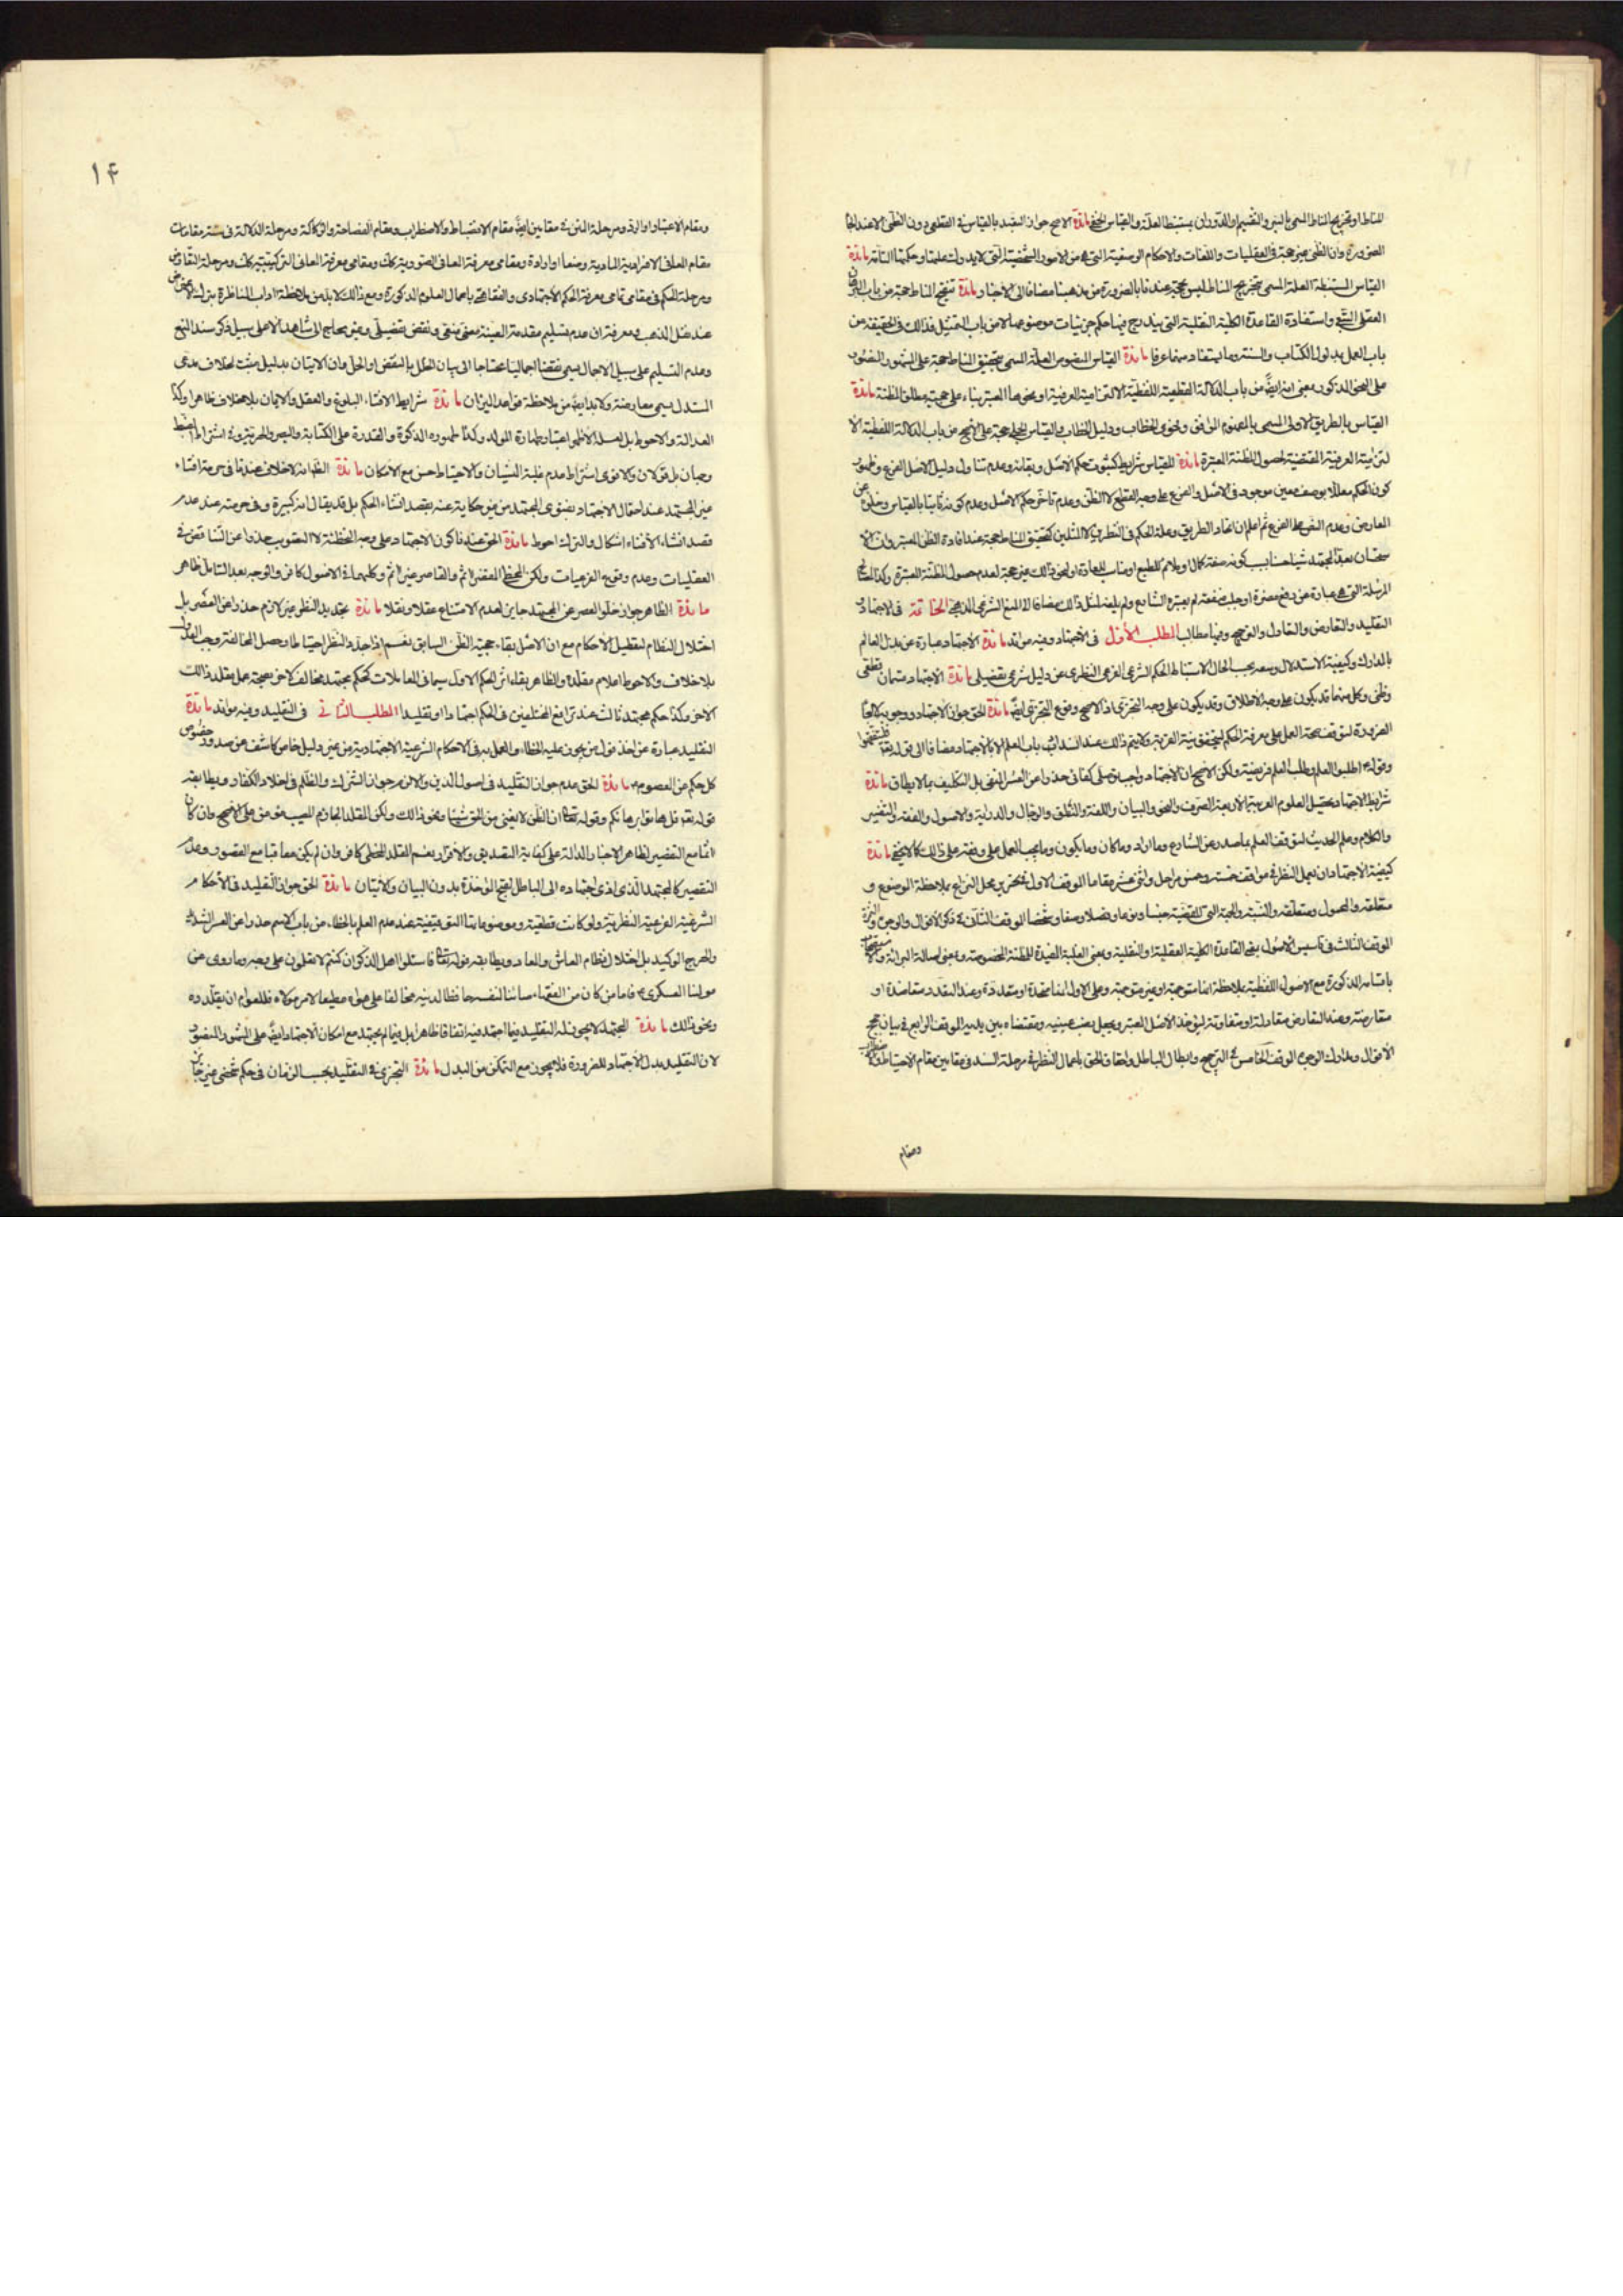 المناط او تخريج المناط المسمى بالسبر والتقسيم او الدوران بمستنبط العلة والقياس الخفي مائدة الاصح جواز التعبد بالقياس في القطعي دون الظني الا عند
الضرورة وان الظني غير حجة في العقليات واللغات والاحكام الوضعية التي هي من الامور التي لا يدرك علمها وحكمها التامة مائدة
القياس المستنبطة العلة المسمى بتخريج المناط ليس بحجة عندنا بالضرورة من مذهبنا مضافا الى الاخبار مائدة تنقيح المناط حجة من باب
العقلي واستفادة القاعدة الكلية النقلية التي يندرج فيها حكم جزئيات موضوعها لا من باب التمثيل فذالك في الحقيقة من
باب العمل بمدلول الكتاب والسنة وما يستفاد منهما عرفا مائدة القياس المنصوص العلة المسمى بتحقيق المناط حجة على المشهور المنصور
على النحو المذكور بمعنى انه ايضا من باب الدلالة القطعية اللفظية الالتزامية العرفية او نحوها المعتبر بناء على حجية مطلق المظنة مائدة
القياس بالطريق الاولى المسمى بالمفهوم الموافق وفحوى الخطاب ودليل الخطاب والقياس الجلي حجة على الاصح من باب الدلالة اللفظية
العرفية المقتضية لحصول المظنة المعتبرة مائدة للقياس شرايط كثبوت حكم الاصل وبقائه وعدم تناول دليل الاصل الفرع وظهور
كون الحكم معللا بوصف معين موجود في الاصل والفرع على وجه القطع لا الظن وعدم تاخر حكم الاصل وعدم كونه ثابتا بالقياس وخلوه عن
المعارض وعدم النص على الفرع ثم اعلم ان اتحاد الطريق وعلة الحكم في النظري كالمثلين كتحقيق المناط حجة عند افادة الظن المعتبر وان
ستحسان بعد المجتهد شيئا حسنا بسبب كونه صفة كمال او ملائم للطبع او مناسب للعادة او نحو ذالك غير حجة لعدم حصول المظنة المعتبرة وكذا المصالح
المرسلة التي هي عبارة عن دفع مضرة او جلب منفعة لم يعتبره الشارع ولم يلغه لمثل ذالك مضافا الى المنع الشرعي المذهبي الخاتمة في الاجتهاد و
التقليد والتعارض والتعادل والترجيح وفيها مطالب المطلب الاول في الاجتهاد وفيه موائد مائدة الاجتهاد عبارة عن بذل العالم
بالمدارك وكيفية الاستدلال وسعه بحسب الحال لاستنباط الحكم الشرعي الفرعي النظري عن دليل شرعي تفصيلي مائدة الاجتهاد قسمان قطعي
وظني وكل منهما قد يكون على وجه الاطلاق وقد يكون على وجه التجزي اذ الاصح وقوع التجزي ايضا مائدة الحق جواز الاجتهاد ووجوبه كفائيا
الضرورة لتوقف صحة العمل على معرفة الحكم ليتحقق نية القربة ولا يتم ذالك عند انسداد باب العلم الا بالاجتهاد مضافا الى قوله تعالى
وقوله اطلبوا العلم وطلب العلم فريضة ولكن الاصح ان الاجتهاد واجب توصلي كفائي حذرا عن العسر المنفي بل التكليف بما لا يطاق مائدة
شرايط الاجتهاد تحصيل العلوم العربية الاربعة الصرف والنحو والبيان واللغة والمنطق والرجال والدراية والاصول والفقه والتفسير
والكلام وعلم الحديث لتوقف العلم بما صدر عن الشارع وما اراد وما كان وما يكون وما يجب العمل على وفقه على ذالك كما لا يخفى مائدة
كيفية الاجتهاد ان يعمل النظر في مواقف خمسة وخمس مراحل واثني عشر مقاما الموقف الاول في تحرير محل النزاع بملاحظة الموضوع و
متعلقه والمحمول ومتعلقه والنسبة والجهة التي للقضية جنسا ونوعا وفصلا وصنفا وشخصا الموقف الثاني في ذكر الاقوال والوجوه
الموقف الثالث في تاسيس الاصول بفهم القاعدة الكلية العقلية او النقلية ومعنى الغلبة المفيدة للمظنة المخصوصة ومعنى اصالة البرائة
باقسامه المذكورة مع الاصول اللفظية بملاحظة انها متوجهة او غير متوجهة وعلى الاول انها متحدة او متعددة وعند التعدد متعاضدة او
متعارضة وعند التعارض متعادلة او متفاوتة ليؤخذ الاصل المعتبر ويجعل نصب عينيه ومقتضاه بين يديه الموقف الرابع في بيان حجج
الاقوال ومدارك الوجوه الموقف الخامس في الترجيح وابطال الباطل واحقاق الحق باعمال النظر في مرحلة السند في مقامين مقام الاحتياط
ومقام
١۴
ومقام الاعتبار او الرد ومرحلة المتن في مقامين ايضا مقام الانضباط والاضطراب ومقام الفصاحة والركاكة ومرحلة الدلالة في ستة مقامات
مقام المعاني الافرادية المادية وضعا او ارادة ومقامي معرفة المعاني الصورية كك ومقامي معرفة المعاني التركيبية كك ومرحلة التعارض
ومرحلة الحكم في مقامي معرفة الحكم الاجتهادي والفقاهتي باعمال العلوم المذكورة ومع ذالك لا بد من ملاحظة اداب المناظرة بترك الاعتراض
عند نقل المذهب ومعرفة ان عدم تسليم مقدمة المعينة يسمى منع ونقض تفصيلي وغير محتاج الى شاهد الا على سبيل ذكر سند المنع
وعدم التسليم على سبيل الاجمال يسمى نقضا اجماليا محتاجا الى بيان الخلل بالنقض او الحل وان الاتيان بدليل مثبت لخلاف مدعى
المستدل يسمى معارضة ولا بد ايضا من ملاحظة قواعد الميزان مائدة شرايط الافتاء البلوغ والعقل والايمان بلا خلاف ظاهرا وكذا
العدالة والاحوط بل لعله الاظهر اعتبار طهارة المولد وكذا الذكورة والقدرة على الكتابة والبصر والحرية وفي اشتراط الضبط
وجهان بل قولان والاقوى اشتراط عدم غلبة النسيان والاحتياط حسن مع الامكان مائدة الظ انه لا خلاف عندنا في حرمة افتاء
غير المجتهد عند احتمال الاجتهاد بفتوى المجتهد من غير حكاية عنه بقصد انشاء الحكم بل قد يقال انه كبيرة وفي حرمته عند عدم
قصد انشاء الافتاء اشكال والترك احوط مائدة الحق عندنا كون الاجتهاد على وجه التخطئة لا التصويب حذرا عن التناقض في
العقليات وعدم وقوع الفرعيات ولكن المخطئ المقصر اثم والقاصر غير اثم وكلهما في الاصول كافر والوجه بعد التامل ظاهر
مائدة الظاهر جواز خلو العصر عن المجتهد جايز لعدم الامتناع عقلا ونقلا مائدة تجديد النظر غير لازم حذرا عن العسر بل
اختلال النظام لتعطيل الاحكام مع ان الاصل بقاء حجية الظن السابق نعم اذا جدد النظر احتياطا وحصل المخالفة وجب العدول
بلا خلاف والاحوط اعلام مقلده والظاهر بقاء اثر الحكم الاول سيما في المعاملات كحكم مجتهد مخالف لاخر بصحة عمل مقلد ذالك
الاخر وكذا حكم مجتهد ثالث عند ترافع المختلفين في الحكم اجتهادا او تقليدا المطلب الثاني في التقليد وفيه موائد مائدة
التقليد عبارة عن اخذ قول من يجوز عليه الخطاء والعمل به في الاحكام الشرعية الاجتهادية من غير دليل خاص كاشف عن صدور خصوص
كل حكم من المعصوم مائدة الحق عدم جواز التقليد في اصول الدين والا لزم جواز الشرك والظلم في اخلاد الكفار ويطابقه
قوله تعالى قل هاتوا برهانكم وقوله تعالى ان الظن لا يغني من الحق شيئا ونحو ذالك ولكن المقلد الجازم المصيب مؤمن على الاصح وان كان
اثما مع التقصير لظاهر الاخبار الدالة على كفاية التصديق والاقرار نعم المقلد المخطئ كافر وان لم يكن معاقبا مع القصور وعدم
التقصير كالمجتهد الذي ادى اجتهاده الى الباطل لقبح المؤاخذة بدون البيان والاتيان مائدة الحق جواز التقليد في الاحكام
الشرعية الفرعية النظرية ولو كانت قطعية وموضوعاتها التوقيفية عند عدم العلم بالخطاء من باب الاسم حذرا عن العسر الشديد
والحرج الوكيد بل اختلال نظام المعاش والمعاد ويطابقه قوله تعالى فاسئلوا اهل الذكر ان كنتم لا تعلمون على وجه وما روى عن
مولنا العسكري ع فاما من كان من الفقهاء صائنا لنفسه حافظا لدينه مخالفا على هواه مطيعا لامر مولاه فللعوام ان يقلدوه
ونحو ذالك مائدة المجتهد لا يجوز له التقليد فيما اجتهد فيه اتفاقا ظاهرا بل فيما لم يجتهد مع امكان الاجتهاد ايضا على المشهور المنصور
لان التقليد بدل الاجتهاد للضرورة فلا يجوز مع التمكن من المبدل مائدة التجزي في التقليد بحسب الزمان في حكم شخصي غير جايز